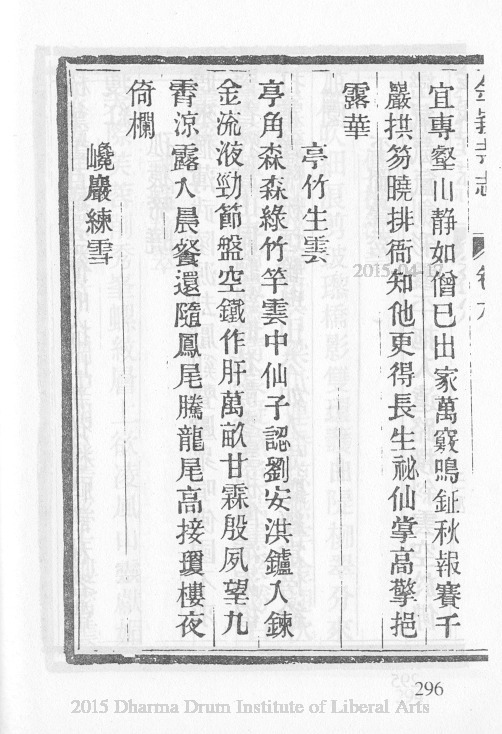 宜專壑山靜如僧已出家萬竅鳴鉦秋報賽千
巖拱笏曉排衙知他更得長生祕仙掌高擎挹
露華
亭竹生雲
亭角森森綠竹竿雲中仙子認劉安洪鑪入鍊
金流液勁節盤空鐵作肝萬畝甘霖殷夙望九
霄涼露入晨餐還隨鳳尾騰龍尾高接瓊樓夜
倚欄
巉巖練雪
296
2015 Dharma Drum Institute of Liberal Arts